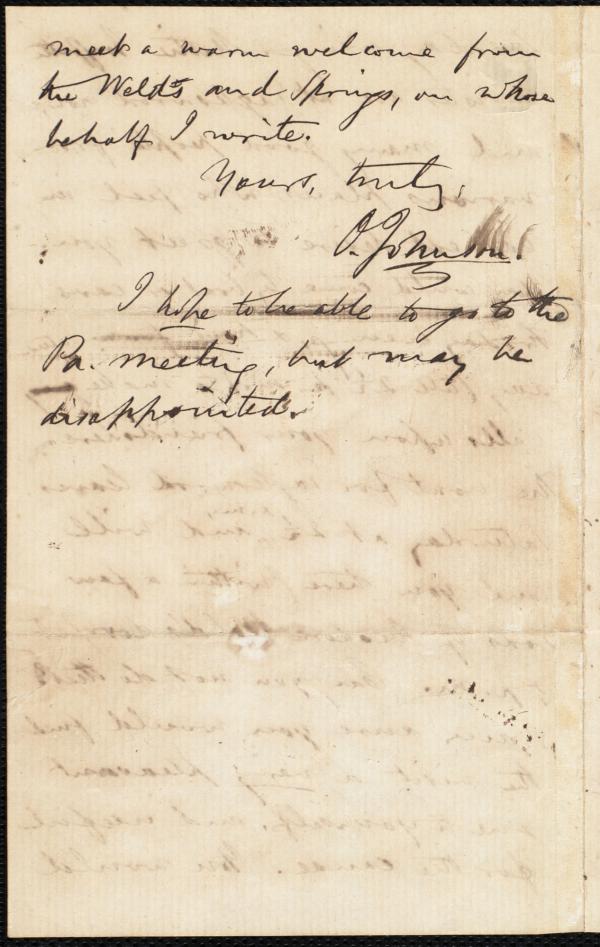 meet a warm welcome from
the Weld's and Springs, on whose
behalf I write.
Yours, truly,
O. Johnson.
I hope to be able to go to the
Pa. meeting, but may be
disappointed.